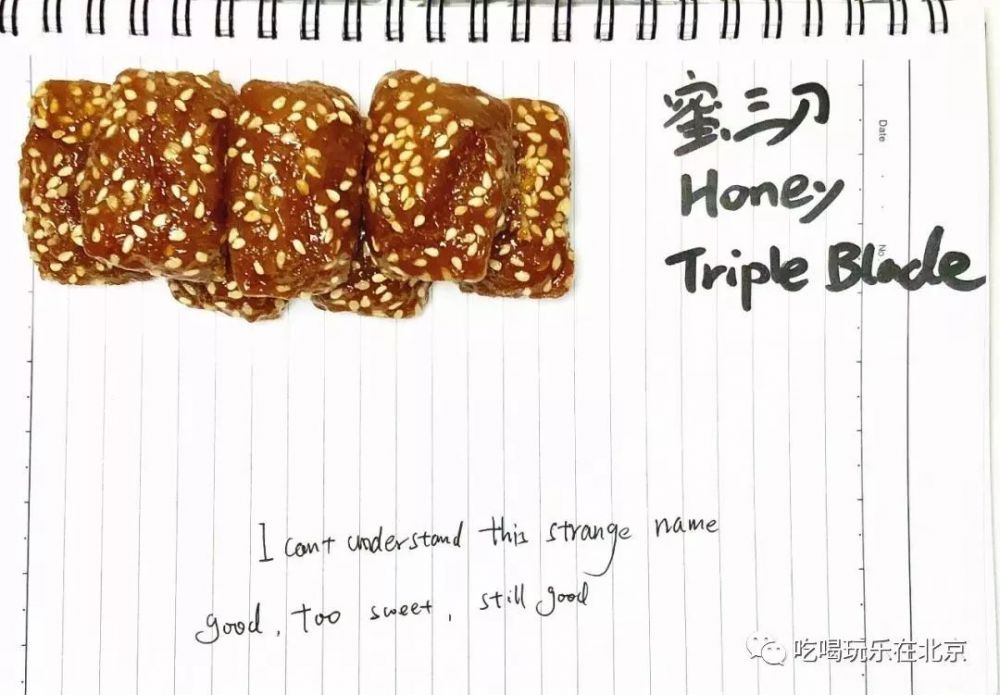 蜜三刀
Honey
Triple Blade
Date
No
I cant understand this strange name
good, too sweet, still good
吃喝玩乐在北京